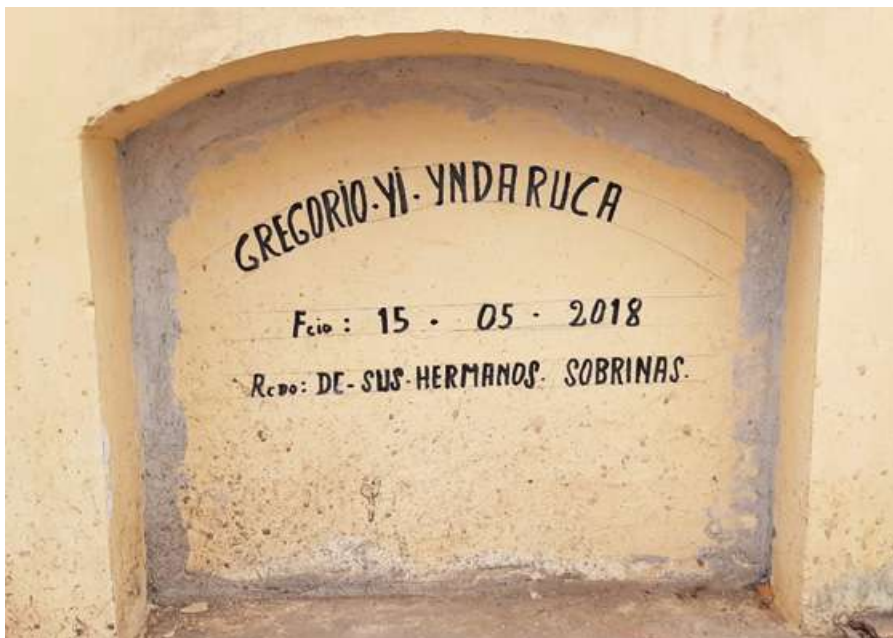 GREGORIO.YI.YNDARUCA
Fcio: 15 . 05 . 2018
RcDo: DE-SUS.HERMANOS. SOBRINAS.